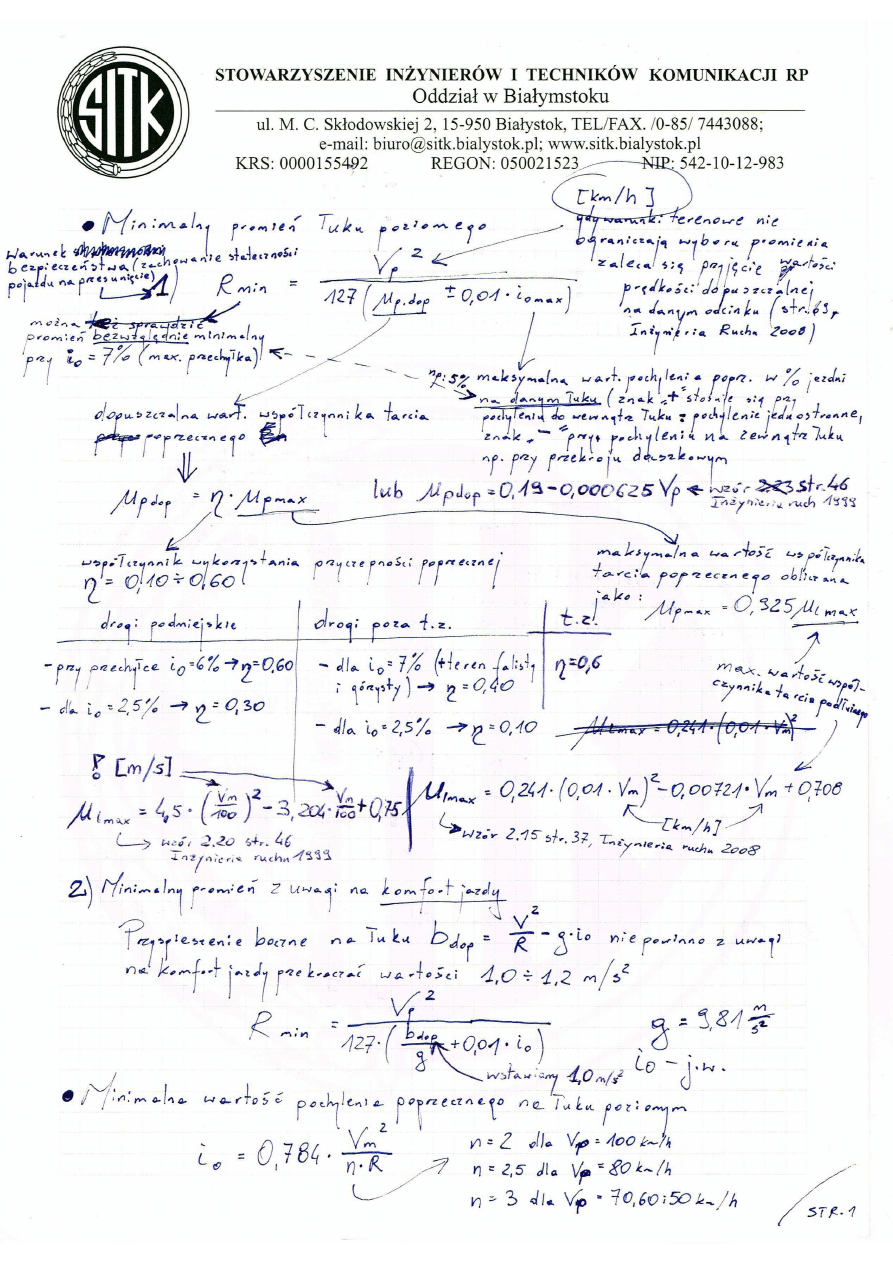 SITK
STOWARZYSZENIE INŻYNIERÓW I TECHNIKÓW KOMUNIKACJI RP
Oddział w Białymstoku
ul. M. C. Skłodowskiej 2, 15-950 Białystok, TEL/FAX. /0-85/ 7443088;
e-mail: biuro@sitk.bialystok.pl; www.sitk.bialystok.pl
KRS: 0000155492 REGON: 050021523 NIP: 542-10-12-983
[km/h]
• Minimalny promień łuku poziomego
gdy warunki terenowe nie
ograniczają wyboru promienia
zaleca się przyjęcie wartości
prędkości dopuszczalnej
na danym odcinku (str. 69,
Inżynieria Ruchu 2008)
warunek
bezpieczeństwa (zachowanie stateczności
pojazdu na przesunięcie)
1) R min = Vp² / 127 (μp.dop ± 0,01 · i0max)
można też sprawdzić
promień bezwzględnie minimalny
przy i0 = 7% (max. przechyłka)
np. 5% maksymalna wart. pochylenia popr. w % jezdni
na danym łuku (znak "+" stosuje się przy
pochyleniu do wewnątrz łuku = pochylenie jednostronne,
znak "-" przy pochyleniu na zewnątrz łuku
np. przy przekroju daszkowym
dopuszczalna wart. współczynnika tarcia
poprzecznego
μpdop = η · μpmax lub μpdop = 0,19 - 0,000625 Vp ← wzór 2.23 str. 46
Inżynieria ruch 1999
współczynnik wykorzystania przyczepności poprzecznej
η = 0,10 ÷ 0,60
maksymalna wartość współczynnika
tarcia poprzecznego obliczana
jako: μpmax = 0,925 μlmax
drogi podmiejskie
drogi poza t.z.
t.z.
- przy przechyłce i0=6% → η=0,60
- dla i0 = 2,5% → η = 0,30
- dla i0 = 7% (+teren falisty
i górzysty) → η = 0,40
- dla i0 = 2,5% → η = 0,10
η=0,6
max. wartość współ-
czynnika tarcia podłużnego
μlmax = 0,241 · (0,01 · Vm)²
! [m/s]
μlmax = 4,5 · (Vm/100)² - 3,204 · Vm/100 + 0,75
wzór 2.20 str. 46
Inżynieria ruchu 1999
μlmax = 0,241 · (0,01 · Vm)² - 0,00721 · Vm + 0,708
[km/h]
wzór 2.15 str. 37, Inżynieria ruchu 2008
2) Minimalny promień z uwagi na komfort jazdy
Przyspieszenie boczne na łuku bdop = V²/R - g·i0 nie powinno z uwagi
na komfort jazdy przekraczać wartości 1,0 ÷ 1,2 m/s²
R min = Vp² / 127 · (bdop/g + 0,01 · i0)
g = 9,81 m/s²
wstawiamy 1,0 m/s²
i0 - j.w.
• Minimalna wartość pochylenia poprzecznego na łuku poziomym
i0 = 0,784 · Vm² / n·R
n = 2 dla Vp = 100 km/h
n = 2,5 dla Vp = 80 km/h
n = 3 dla Vp = 70,60 i 50 km/h
STR. 1